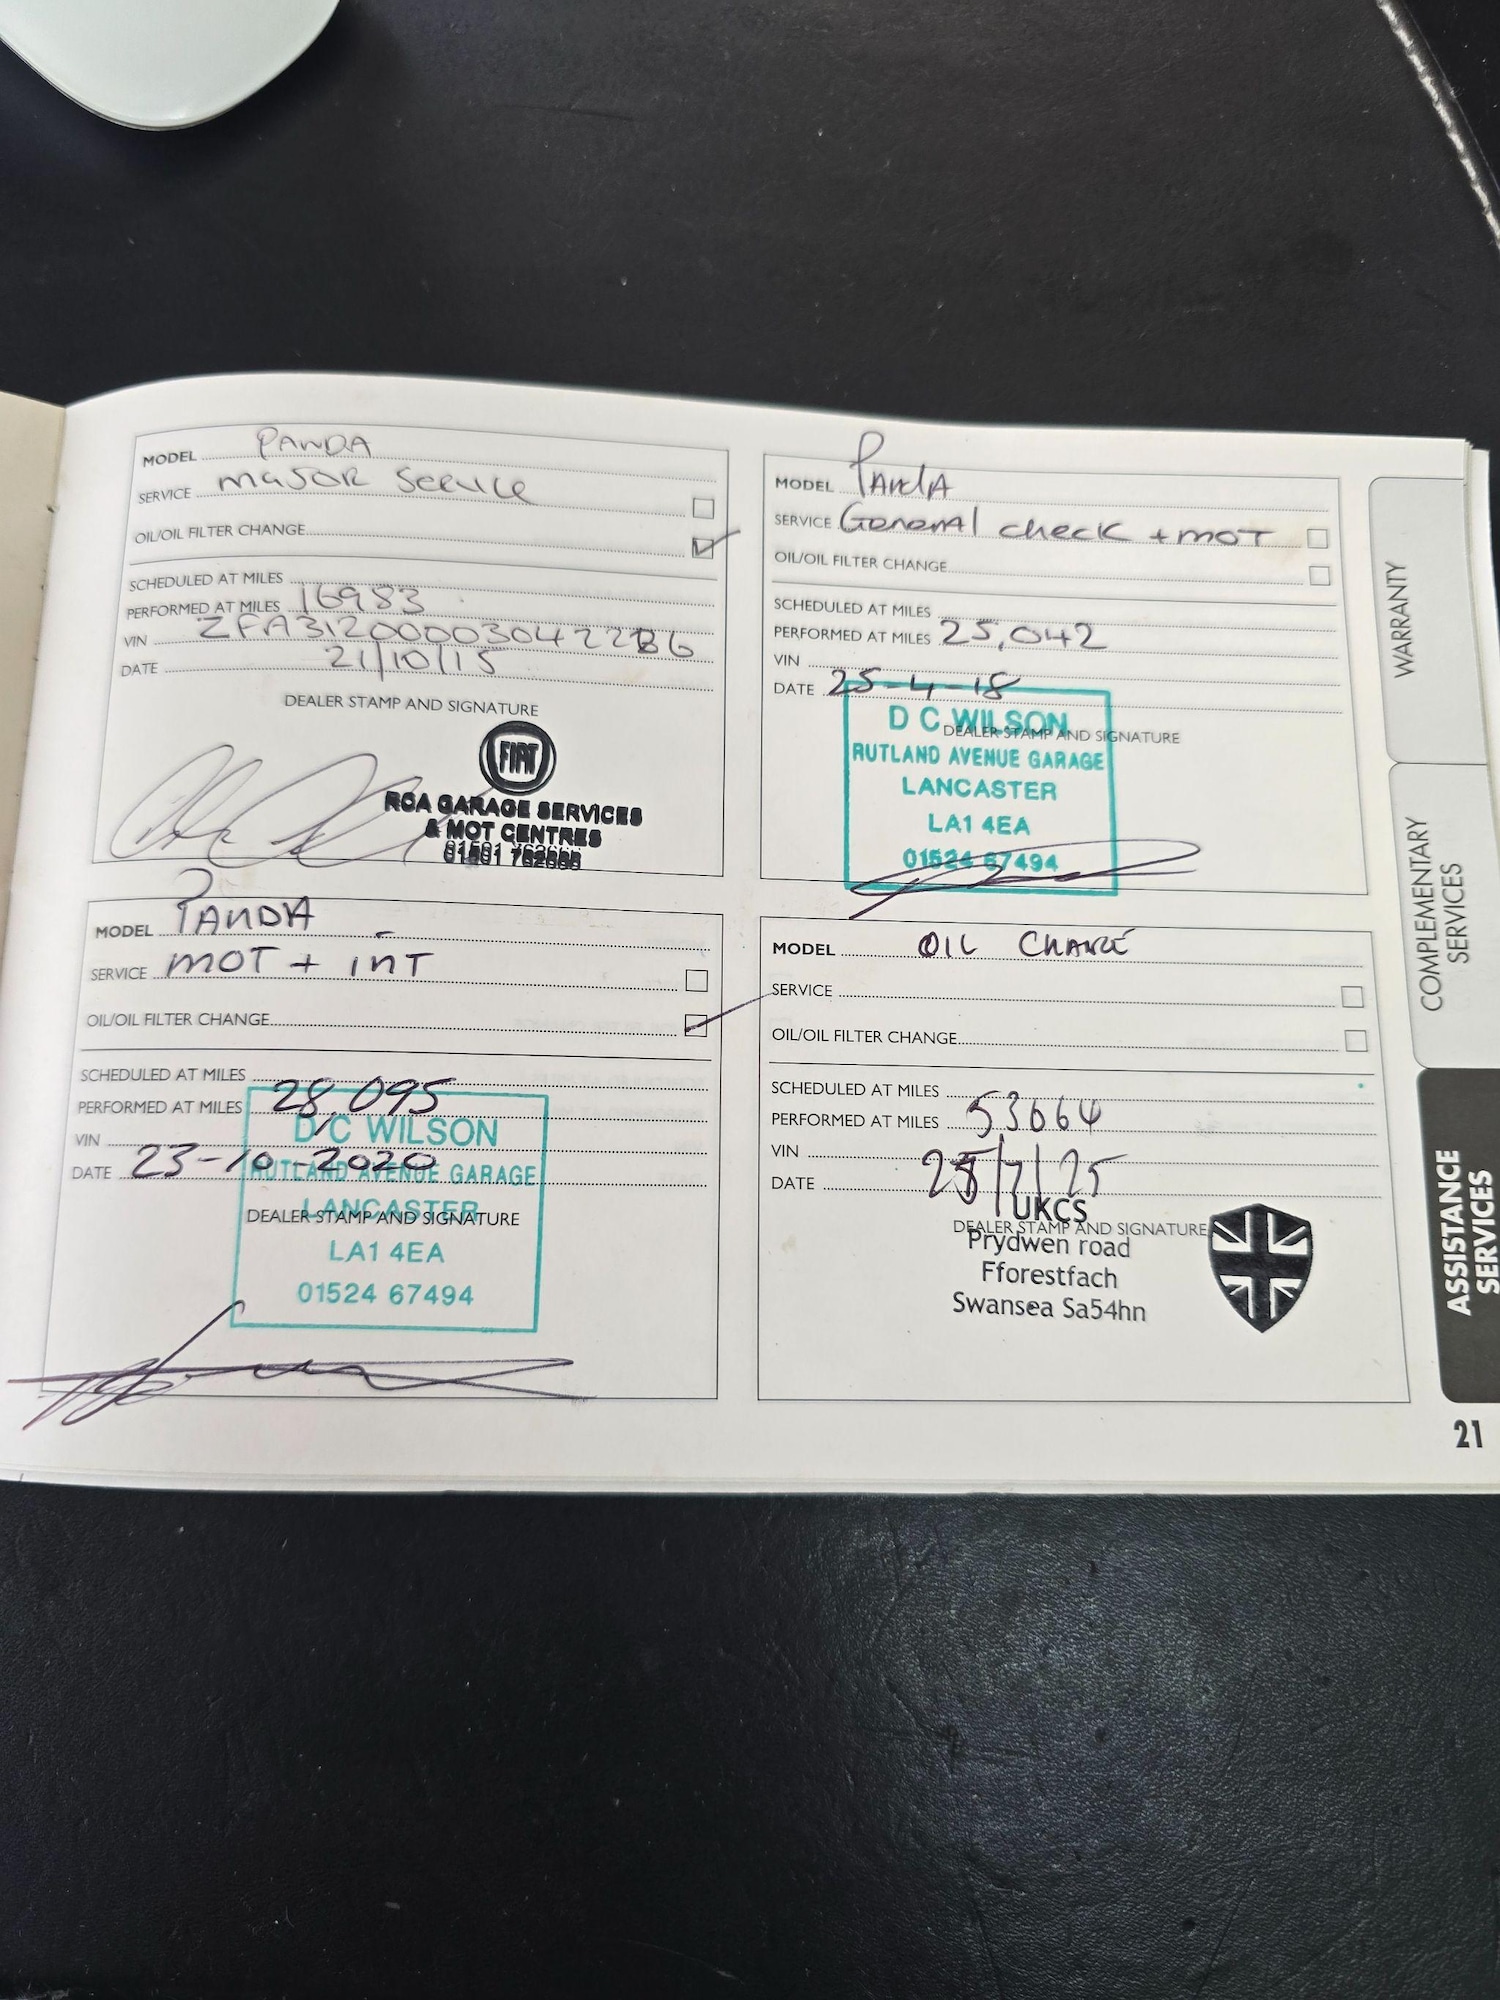 MODEL PANDA
SERVICE MAJOR SERVICE
OIL/OIL FILTER CHANGE
SCHEDULED AT MILES
PERFORMED AT MILES 16983
VIN ZFA31200003042286
DATE 21/10/15
DEALER STAMP AND SIGNATURE
FIAT
RCA GARAGE SERVICES
& MOT CENTRES
MODEL PANDA
SERVICE General check + MOT
OIL/OIL FILTER CHANGE
SCHEDULED AT MILES
PERFORMED AT MILES 25,042
VIN
DATE 25-4-18
DEALER STAMP AND SIGNATURE
D C WILSON
RUTLAND AVENUE GARAGE
LANCASTER
LA1 4EA
01524 67494
MODEL PANDA
SERVICE MOT + INT
OIL/OIL FILTER CHANGE
SCHEDULED AT MILES
PERFORMED AT MILES 28,095
VIN
DATE 23-10-2020
D C WILSON
RUTLAND AVENUE GARAGE
LANCASTER
DEALER STAMP AND SIGNATURE
LA1 4EA
01524 67494
MODEL OIL CHANGE
SERVICE
OIL/OIL FILTER CHANGE
SCHEDULED AT MILES
PERFORMED AT MILES 53664
VIN
DATE 25/7/25
UKCS
DEALER STAMP AND SIGNATURE
Prydwen road
Fforestfach
Swansea Sa54hn
WARRANTY
COMPLEMENTARY
SERVICES
ASSISTANCE
SERVICES
21